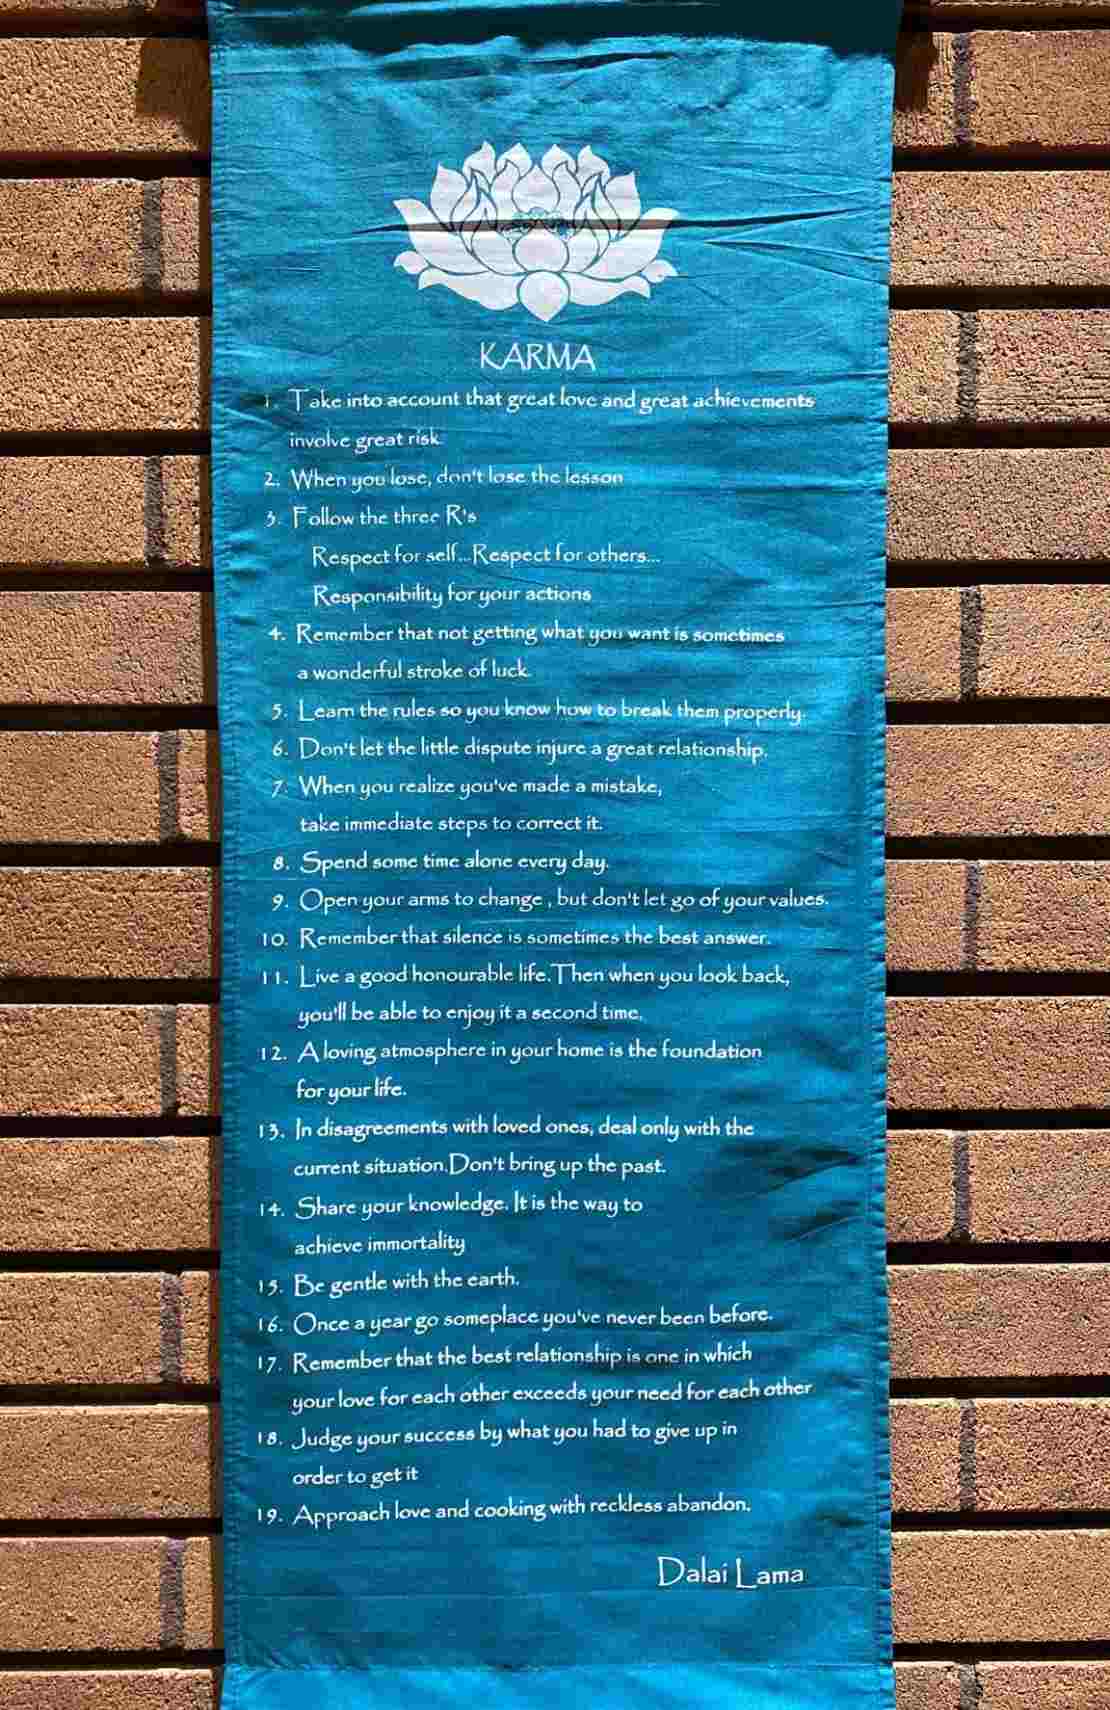 KARMA
1. Take into account that great love and great achievements
involve great risk.
2. When you lose, don't lose the lesson
3. Follow the three R's
Respect for self...Respect for others...
Responsibility for your actions
4. Remember that not getting what you want is sometimes
a wonderful stroke of luck.
5. Learn the rules so you know how to break them properly.
6. Don't let the little dispute injure a great relationship.
7. When you realize you've made a mistake,
take immediate steps to correct it.
8. Spend some time alone every day.
9. Open your arms to change , but don't let go of your values.
10. Remember that silence is sometimes the best answer.
11. Live a good honourable life.Then when you look back,
you'll be able to enjoy it a second time.
12. A loving atmosphere in your home is the foundation
for your life.
13. In disagreements with loved ones, deal only with the
current situation.Don't bring up the past.
14. Share your knowledge. It is the way to
achieve immortality
15. Be gentle with the earth.
16. Once a year go someplace you've never been before.
17. Remember that the best relationship is one in which
your love for each other exceeds your need for each other
18. Judge your success by what you had to give up in
order to get it
19. Approach love and cooking with reckless abandon.
Dalai Lama